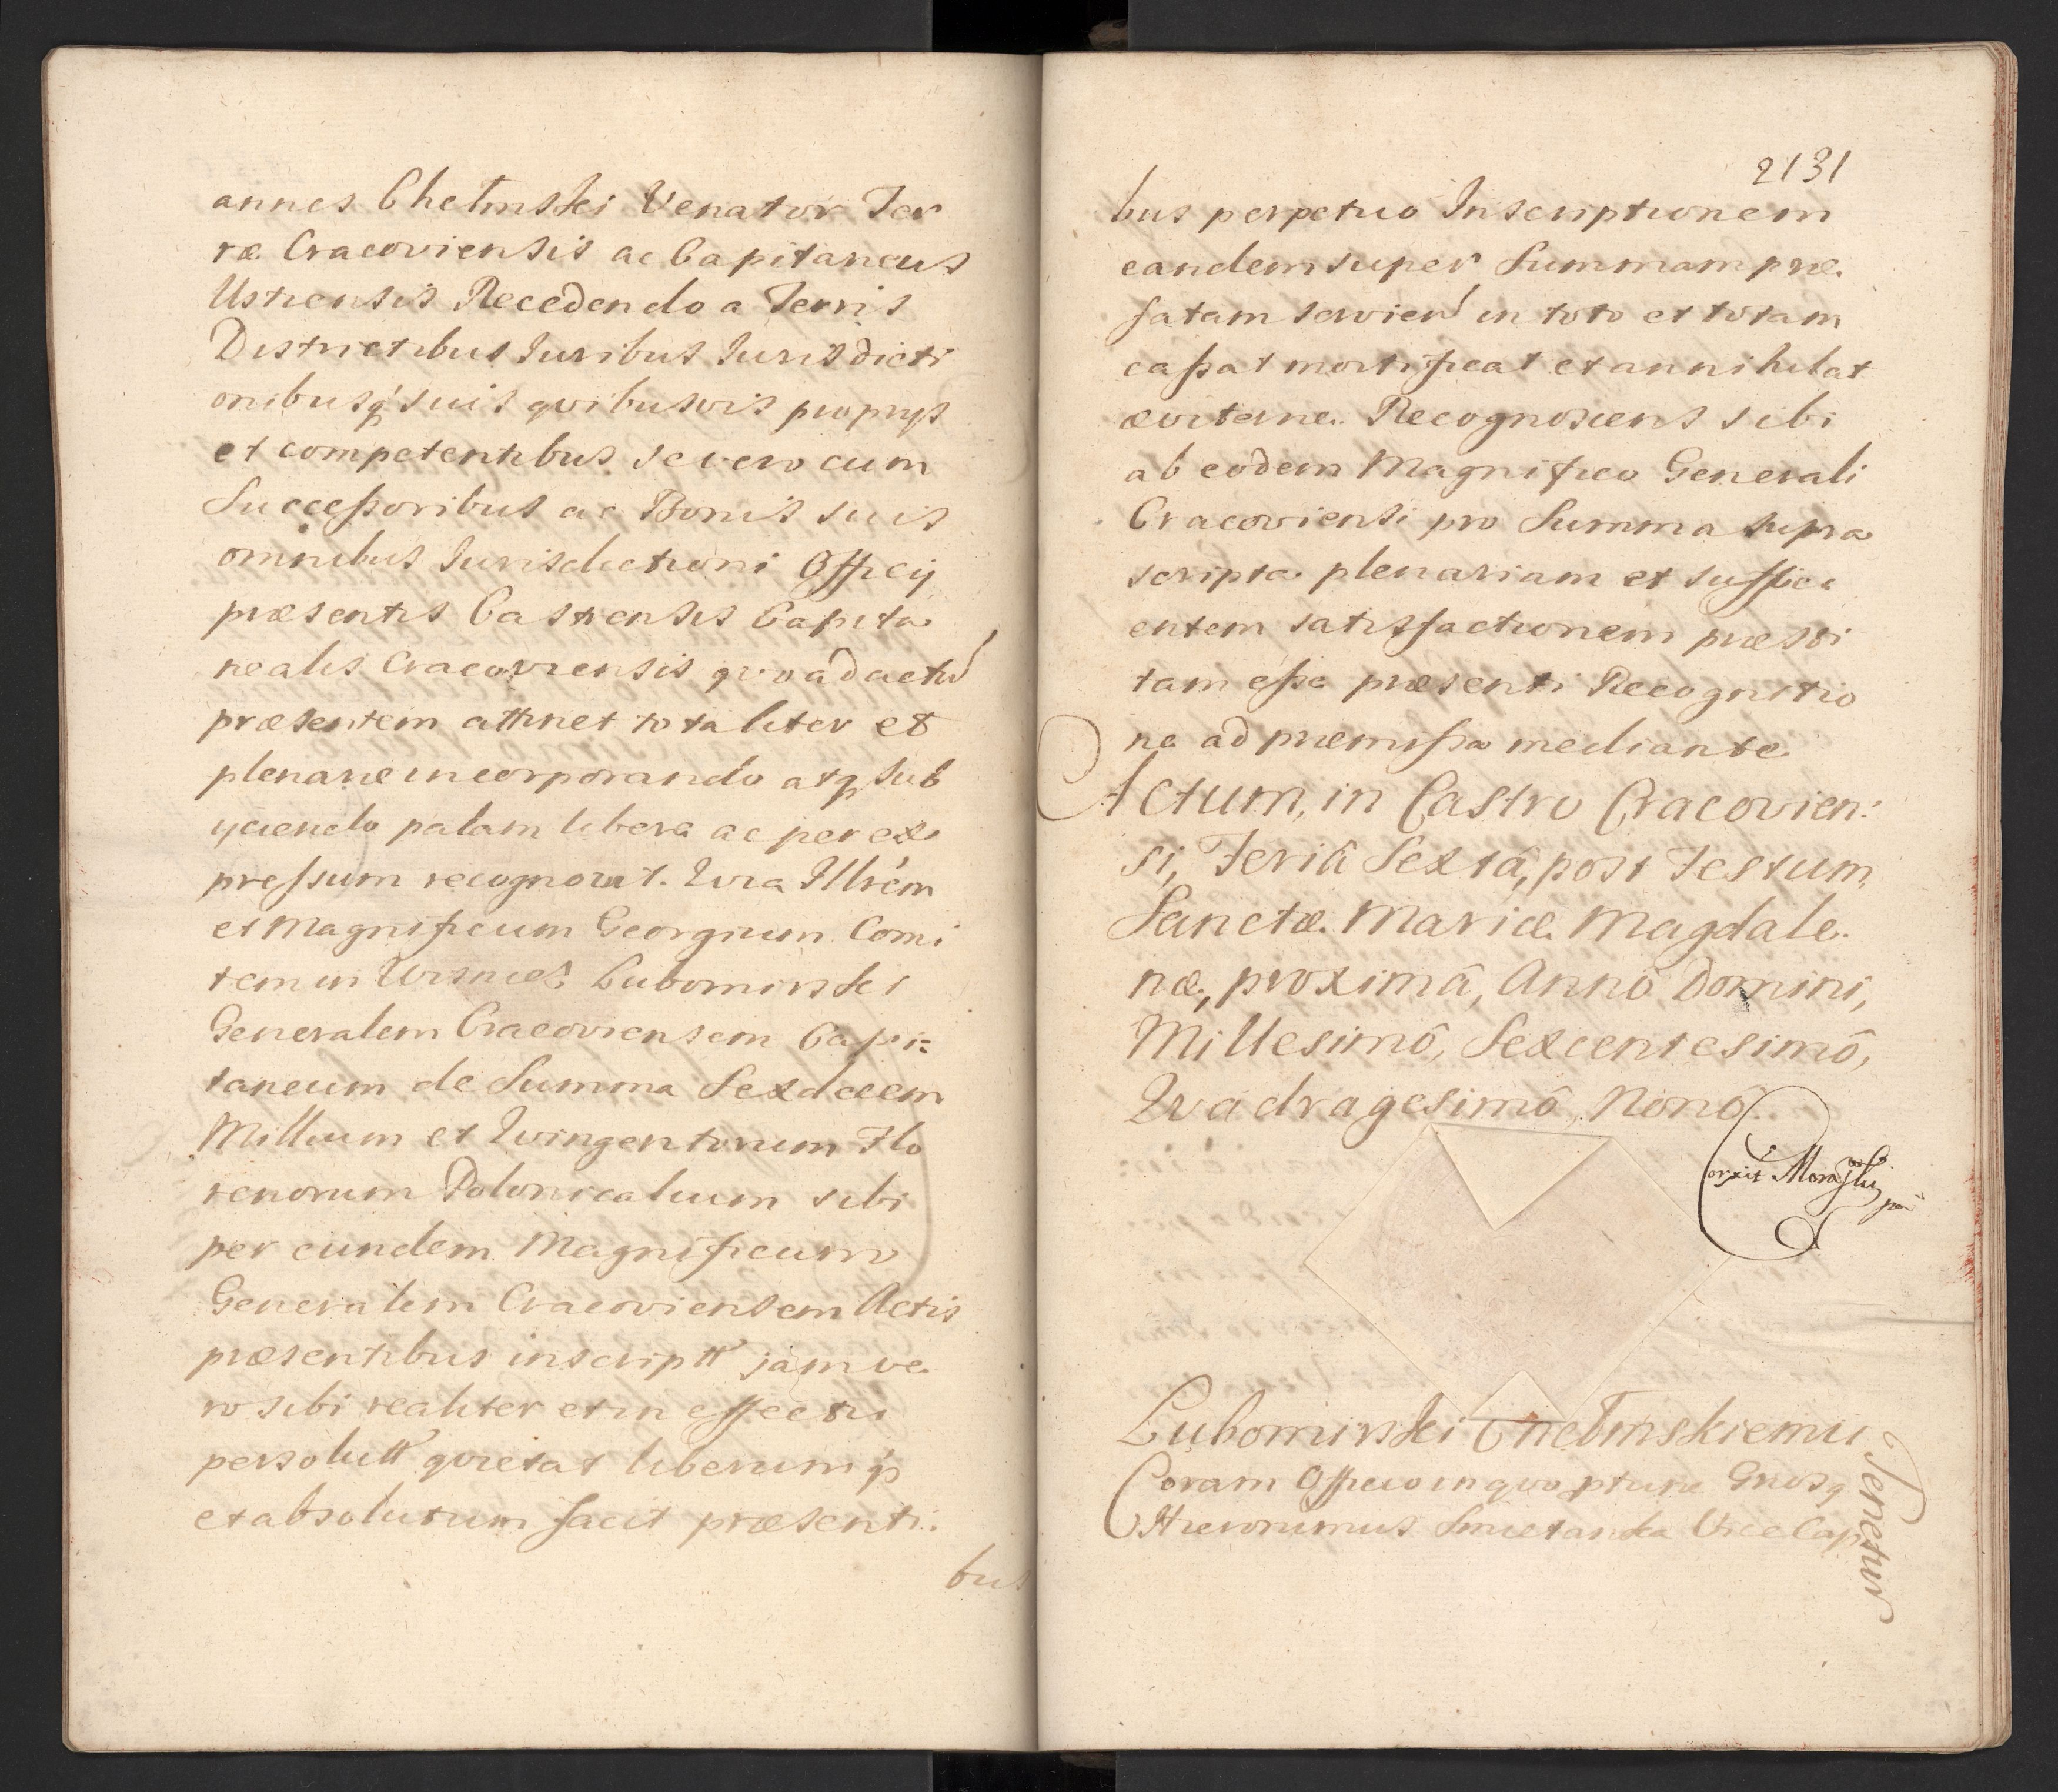 annes Chełmski Venator Ter
ræ Cracoviensis ac Capitaneus
Ustiensis Recedendo a Terris
Districtibus Iuribus Iurisdicti
onibusq́ suis qvibusvis proprys
et competentibus se vero cum
Successoribus ac Bonis suis
omnibus Iurisdictioni Officij
præsentis Castrensis Capita
nealis Cracoviensis qvo ad actũ
præsentem attinet totaliter et
plenarie incorporando atq sub
yciendo palam libere ac per ex
pressum recognovit. Qvia Illrém
et Magnificum Georgium Comi
tem in Wisnicz Lubomirski
Generalem Cracoviensem Capi=
taneum de Summa Sexdecem
Millium et Qvingentorum Flo
renorum Polonicalium sibi
per eundem Magnificum
Generalem Cracoviensem Actis
præsentibus inscriptt jam ve
ro sibi realiter et in effectu
persolutt qvietat liberumq́
et absolutum facit præsenti.
bus
2131
bus perpetuo Inscriptionem
eandem super Summam præ
fatam servien̄ in toto et totam
cassat mortificat et annihilat
æviterne. Recognoscens sibi
ab eodem Magnifico Generali
Cracoviensi pro Summa supra
scripta plenariam et suffici
entem satisfactionem præsti
tam esse præsenti Recognitio
ne ad præmissa mediante
Actum, in Castro Cracovien:
si, Feriâ Sextâ, post Festum
Sanctæ Mariæ Magdale.
næ, proximâ, Annô Domini,
Millesimô, Sexcentesimô,
Qvadragesimô, Nonô.
Lubomirski Chełmskiemu
Coram Officio in qvo ptunc Gnosq
Hieronimus Smietanka ViceCap
Tenetur